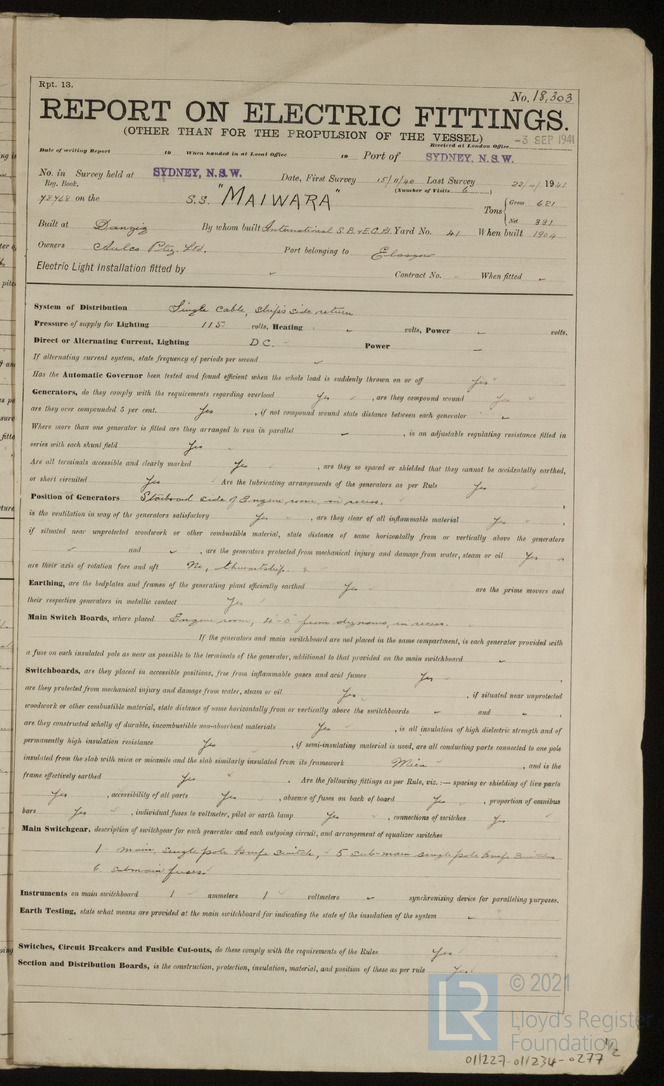 Rpt. 13.
No. 18,303
REPORT ON ELECTRIC FITTINGS.
(OTHER THAN FOR THE PROPULSION OF THE VESSEL)
-3 SEP 1941
Date of writing Report 19 When handed in at Local Office 19 Port of SYDNEY, N.S.W. Received at London Office
No. in Survey held at SYDNEY, N.S.W. Date, First Survey 15/11/40 Last Survey 1941
Reg. Book. (Number of Visits 6 )
on the S.S. "MAIWARA" Tons { Gross 621
Net 331
Built at Danzig By whom built International S.B. & E.C. Ld. Yard No. 41 When built 1904
Owners Pty. Ltd. Port belonging to Glasgow
Electric Light Installation fitted by Contract No. When fitted
System of Distribution Single cable, ship's side return
Pressure of supply for Lighting 115 volts, Heating volts, Power volts.
Direct or Alternating Current, Lighting D.C. Power
If alternating current system, state frequency of periods per second
Has the Automatic Governor been tested and found efficient when the whole load is suddenly thrown on or off Yes
Generators, do they comply with the requirements regarding overload Yes , are they compound wound Yes
are they over compounded 5 per cent. Yes , if not compound wound state distance between each generator
Where more than one generator is fitted are they arranged to run in parallel , is an adjustable regulating resistance fitted in
series with each shunt field Yes
Are all terminals accessible and clearly marked Yes , are they so spaced or shielded that they cannot be accidentally earthed,
or short circuited Yes Are the lubricating arrangements of the generators as per Rule Yes
Position of Generators Starboard side of Engine room, in recess.
is the ventilation in way of the generators satisfactory Yes , are they clear of all inflammable material Yes
if situated near unprotected woodwork or other combustible material, state distance of same horizontally from or vertically above the generators
and , are the generators protected from mechanical injury and damage from water, steam or oil Yes
are their axis of rotation fore and aft No, thwartship.
Earthing, are the bedplates and frames of the generating plant efficiently earthed Yes are the prime movers and
their respective generators in metallic contact Yes
Main Switch Boards, where placed Engine room, from dynamo, in recess.
If the generators and main switchboard are not placed in the same compartment, is each generator provided with
a fuse on each insulated pole as near as possible to the terminals of the generator, additional to that provided on the main switchboard
Switchboards, are they placed in accessible positions, free from inflammable gases and acid fumes Yes
are they protected from mechanical injury and damage from water, steam or oil Yes , if situated near unprotected
woodwork or other combustible material, state distance of same horizontally from or vertically above the switchboards and ,
are they constructed wholly of durable, incombustible non-absorbent materials Yes , is all insulation of high dielectric strength and of
permanently high insulation resistance Yes , if semi-insulating material is used, are all conducting parts connected to one pole
insulated from the slab with mica or micanite and the slab similarly insulated from its framework Mica , and is the
frame effectively earthed Yes . Are the following fittings as per Rule, viz. :— spacing or shielding of live parts
Yes , accessibility of all parts Yes , absence of fuses on back of board Yes , proportion of omnibus
bars Yes , individual fuses to voltmeter, pilot or earth lamp Yes , connections of switches Yes
Main Switchgear, description of switchgear for each generator and each outgoing circuit, and arrangement of equaliser switches
1 - main, single pole knife switch, 5 sub-main single pole knife switches
6 submain fuses.
Instruments on main switchboard 1 ammeters 1 voltmeters synchronising device for paralleling purposes.
Earth Testing, state what means are provided at the main switchboard for indicating the state of the insulation of the system
Switches, Circuit Breakers and Fusible Cut-outs, do these comply with the requirements of the Rules Yes
Section and Distribution Boards, is the construction, protection, insulation, material, and position of these as per rule Yes
LR
© 2021
Lloyd's Register
Foundation
011227-011234-0277 1/2